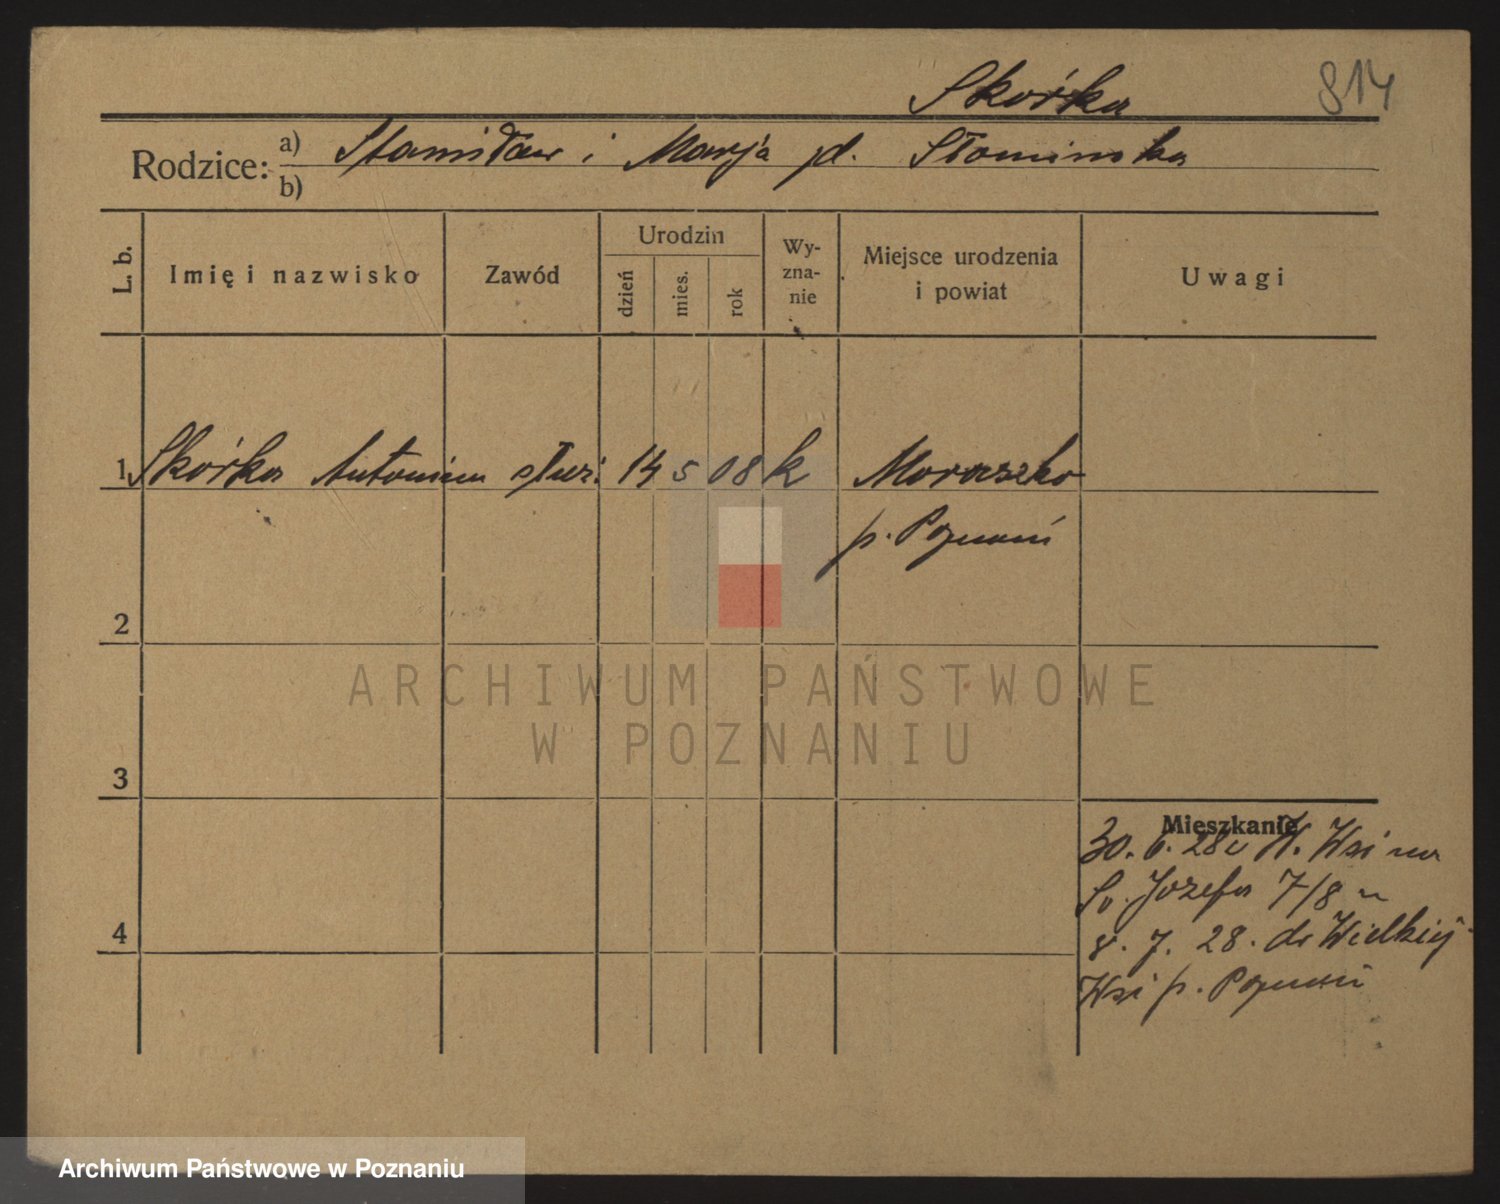 Skórka 814
Rodzice: a) Stanisław i Marja pd. Słomińska
b)
L. b. Imię i nazwisko Zawód Urodzin dzień mies. rok Wy-zna-nie Miejsce urodzenia i powiat Uwagi
1 Skórka Antonina służ. 14 5 08 k Moraszko
p. Poznań
2
ARCHIWUM PAŃSTWOWE
W POZNANIU
3
Mieszkanie
30. 6. 28 W. Wsi na
Sv. Józefa 7/8
4
8. 7. 28. do Wielkiej
Wsi p. Poznań
Archiwum Państwowe w Poznaniu